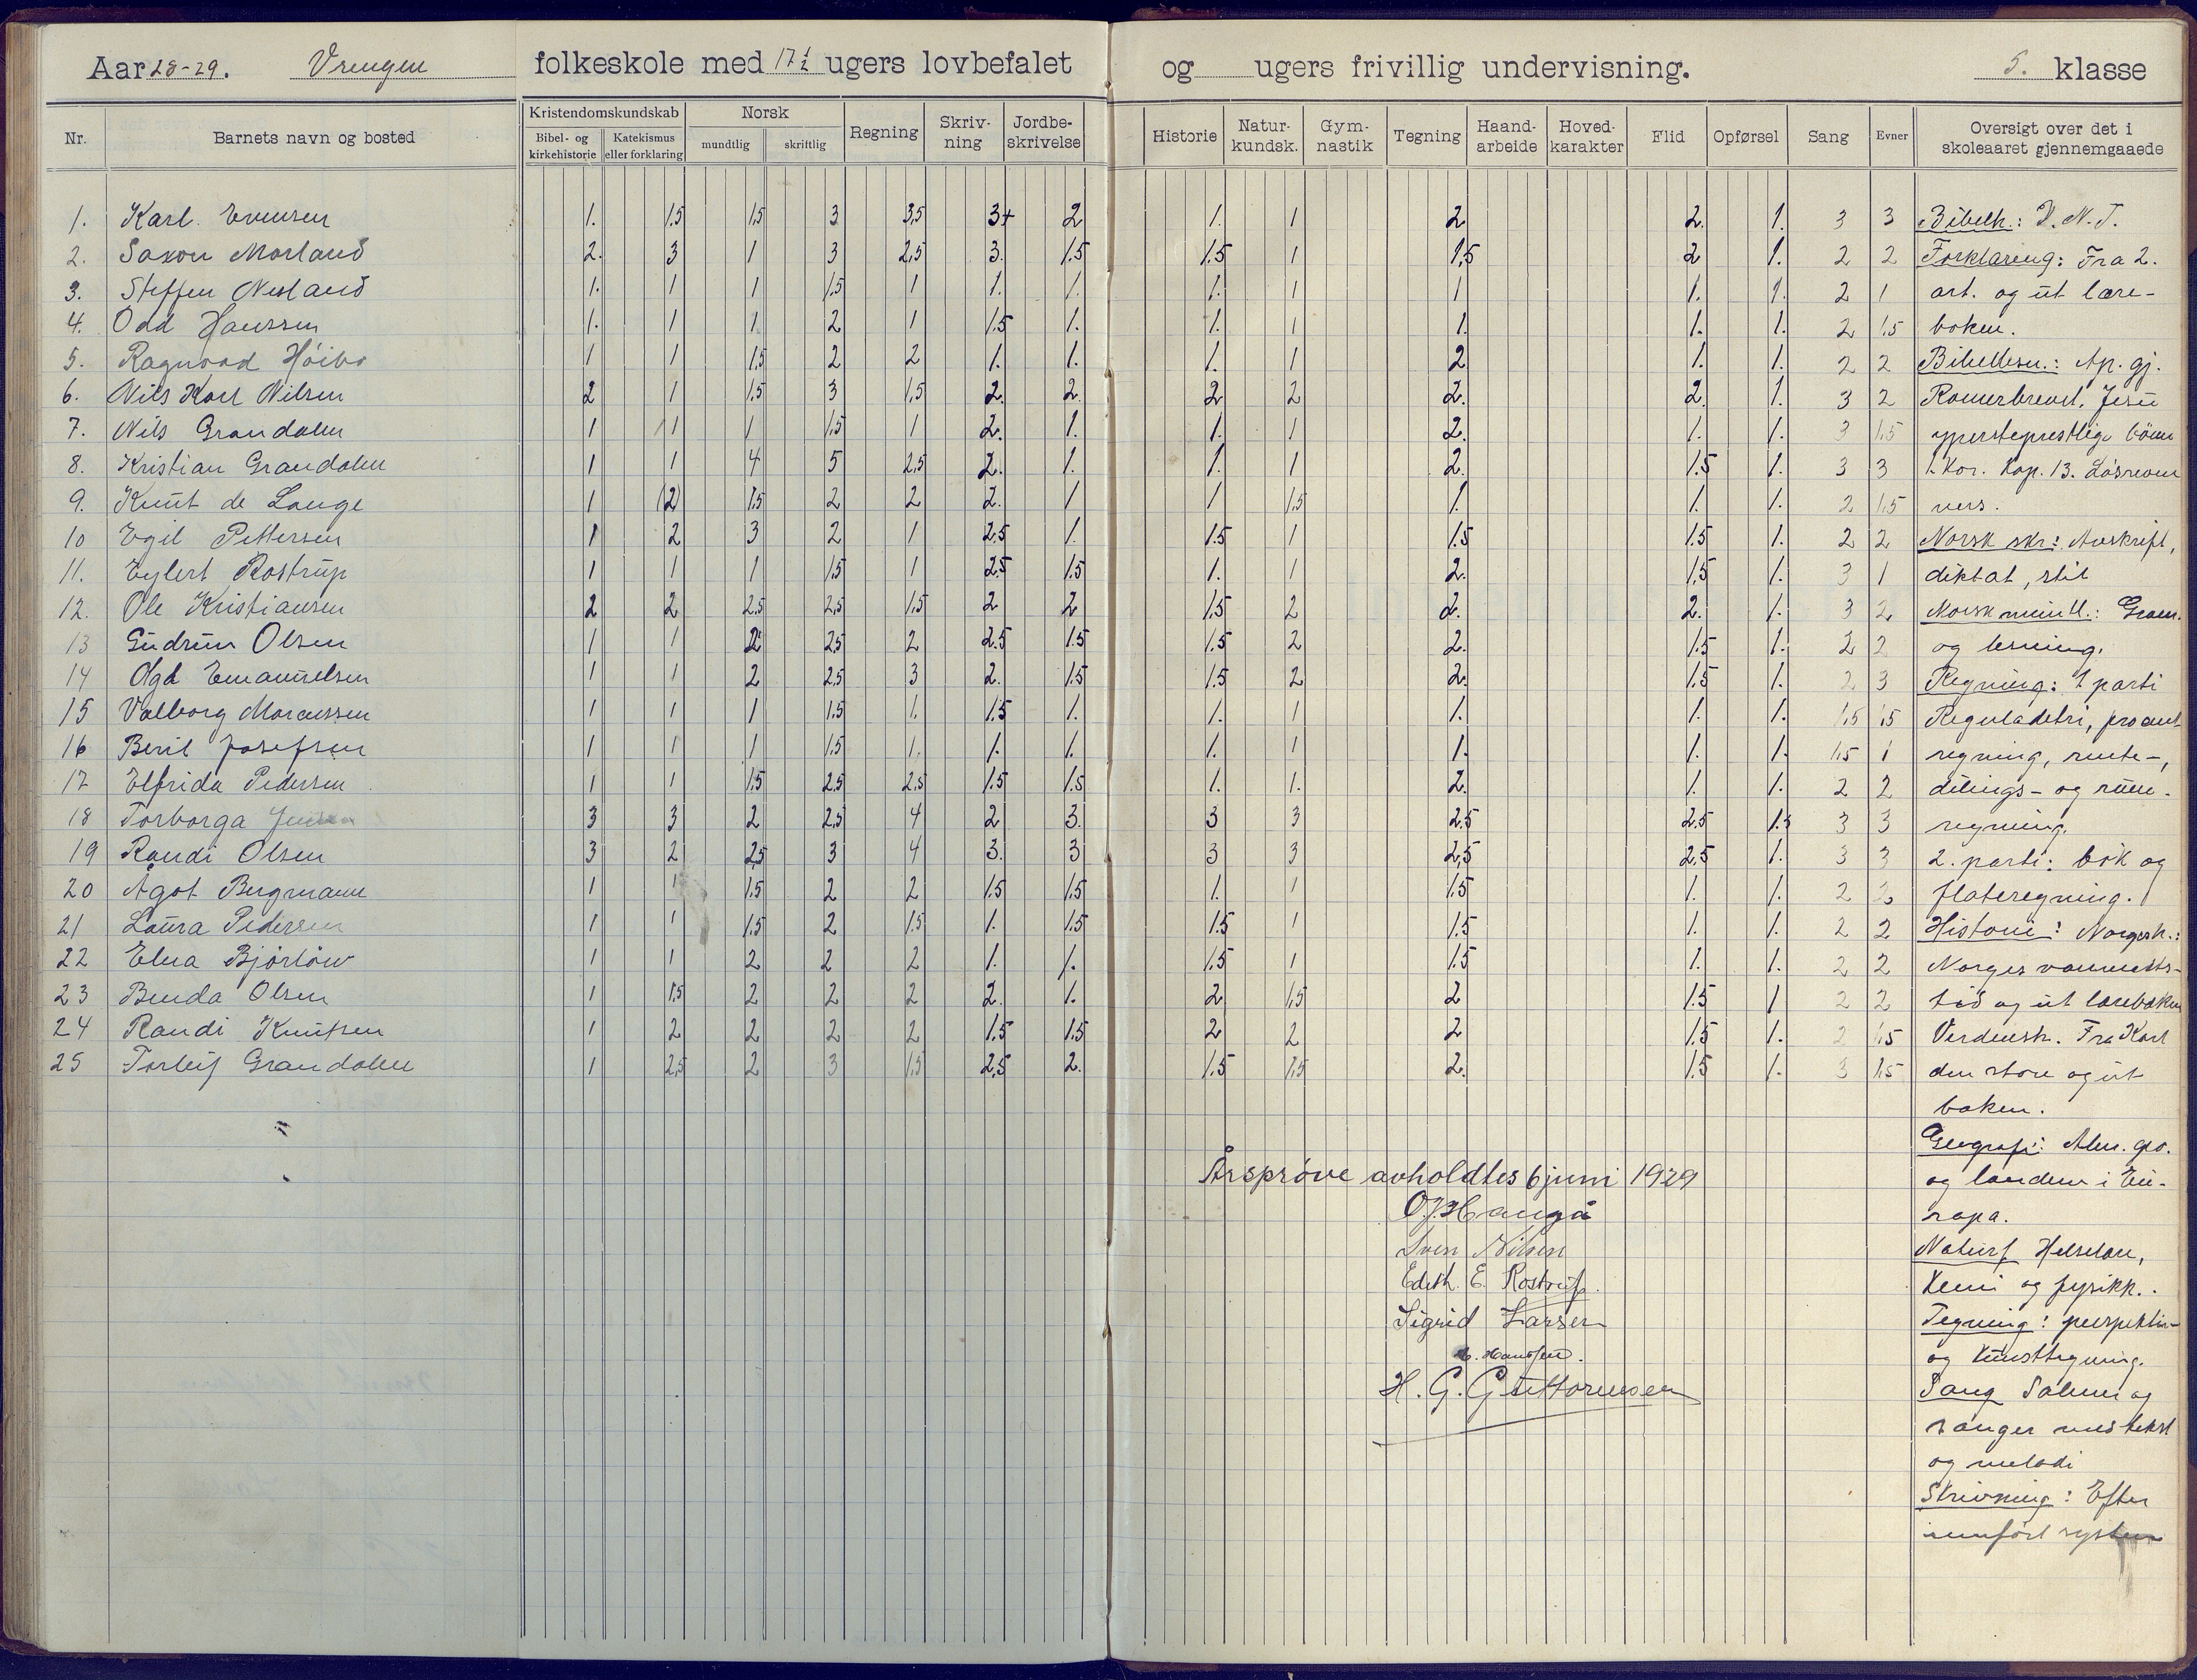 Aar 28-29. Vrengen folkeskole med 17 1/2 ugers lovbefalet og ugers frivillig undervisning. 5. klasse
Nr. Barnets navn og bosted Kristendomskundskab Bibel- og kirkehistorie Katekismus eller forklaring Norsk mundtlig skriftlig Regning Skriv-ning Jordbe-skrivelse Historie Natur-kundsk. Gym-nastik Tegning Haand-arbeide Hoved-karakter Flid Opførsel Sang Evner Oversigt over det i skoleaaret gjennemgaaede
1. Karl Evensen 1. 1,5 1,5 3 3,5 3+ 2 1. 1 2 2. 1. 3 3 Bibelh.: N.T.
2. Saxon Morland 2. 3 1 3 2,5 3. 1.5 1.5 1 1,5 2 1. 2 2 Forklaring: Fra 2.
3. Steffen Nesland 1. 1 1 1,5 1 1. 1. 1. 1 1 1. 1. 2 1 art. og ut lære-
4. Odd Hanssen 1. 1 1 2 1 1.5 1. 1. 1 1. 1. 1. 2 1,5 boken.
5. Ragnvad Høibo 1 1 1,5 2 2 1. 1. 1. 1 2 1. 1. 2 2 Bibellesn.: Ap. gj.
6. Nils Karl Nilsen 2 1 1,5 3 1,5 2. 2. 2 2 2. 2. 1. 3 2 Romerbrevet, Jesu
7. Nils Grandalen 1 1 1 1,5 1 2. 1. 1. 1 2. 1. 1. 3 1,5 ypersteprestlige bönn
8. Kristian Grandalen 1 1 4 5 2,5 2. 1. 1. 1 2. 1.5 1. 3 3 1. Kor. Kap. 13. Lösrevne
9. Knut de Lange 1 (2) 1,5 2 2 2. 1 1 1,5 1. 1. 1. 2 1,5 vers.
10 Egil Pettersen 1 2 3 2 1 2.5 1. 1.5 1 1.5 1.5 1. 2 2 Norsk skr.: Avskrift,
11. Eylert Rostrup 1 1 1 1,5 1 2.5 1.5 1. 1 2. 1,5 1. 3 1 diktat, stil
12. Ole Kristiansen 2 2 2.5 2,5 1.5 2 2 1.5 2 2. 2. 1. 3 2 Norsk muntl.: Gram.
13 Gudrun Olsen 1 1 2 2,5 2 2.5 1.5 1.5 2 2. 1.5 1. 2 2 og lesning.
14 Olga Emanuelsen 1 1 2 2,5 3 2. 1.5 1.5 2 2. 1.5 1. 2 3 Regning: 1 parti
15 Valborg Marcussen 1 1 1 1.5 1. 1.5 1. 1. 1 1. 1. 1. 1,5 1,5 Reguladetri, prosent
16 Beril Josefsen 1 1 1 1.5 1. 1. 1. 1. 1 1. 1. 1. 1,5 1 regning, rente-,
17 Elfrida Pedersen 1 1 1,5 2,5 2,5 1.5 1.5 1. 1. 2. 1. 1. 2 2 delings- og rum-
18 Torborga 3 3 2 2,5 4 2 3. 3 3 2.5 2.5 1.5 3 3 regning.
19 Randi Olsen 3 2 2,5 3 4 3. 3 3 3 2,5 2,5 1. 3 3 2. parti: brøk og
20 Ågot Bergmann 1 1 1.5 2 2 1.5 1.5 1. 1 1.5 1. 1. 2 2 flateregning.
21 Laura Pedersen 1 1 1.5 2 1.5 1. 1.5 1.5 1 1.5 1. 1. 2 2 Historie: Norgesh.:
22 Elna Bjørløw 1 1 2 2 2 1. 1. 1.5 1 1.5 1. 1. 2 2 Norges vanmakts-
23 Benda Olsen 1 1,5 2 2 2 2. 1. 2 1,5 2 1.5 1 2 2 tid og ut læreboken
24 Randi Knutsen 1 2 2 2 2 1.5 1.5 2 2 2 1.5 1. 2 1,5 Verdensh. Fra Karl
25 Torleif Grandalen 1 2,5 2 3 1,5 2,5 2. 1.5 1,5 2. 1.5 1. 3 1,5 den store og ut
boken.
Geografi: Alm. geo.
Årsprøve avholdtes 6 juni 1929 og landene i Eu-
O.J. Haugå ropa.
Sven Nilsen Naturf. Helselære,
Edith E. Rostrup. Kemi og fysikk.
Sigrid Larsen Tegning: perspektiv-
Hanssen. og kunsttegning.
H. G. Guttormsen Sang Salmer og
sanger med tekst
og melodi
Skrivning: Efter
innført system